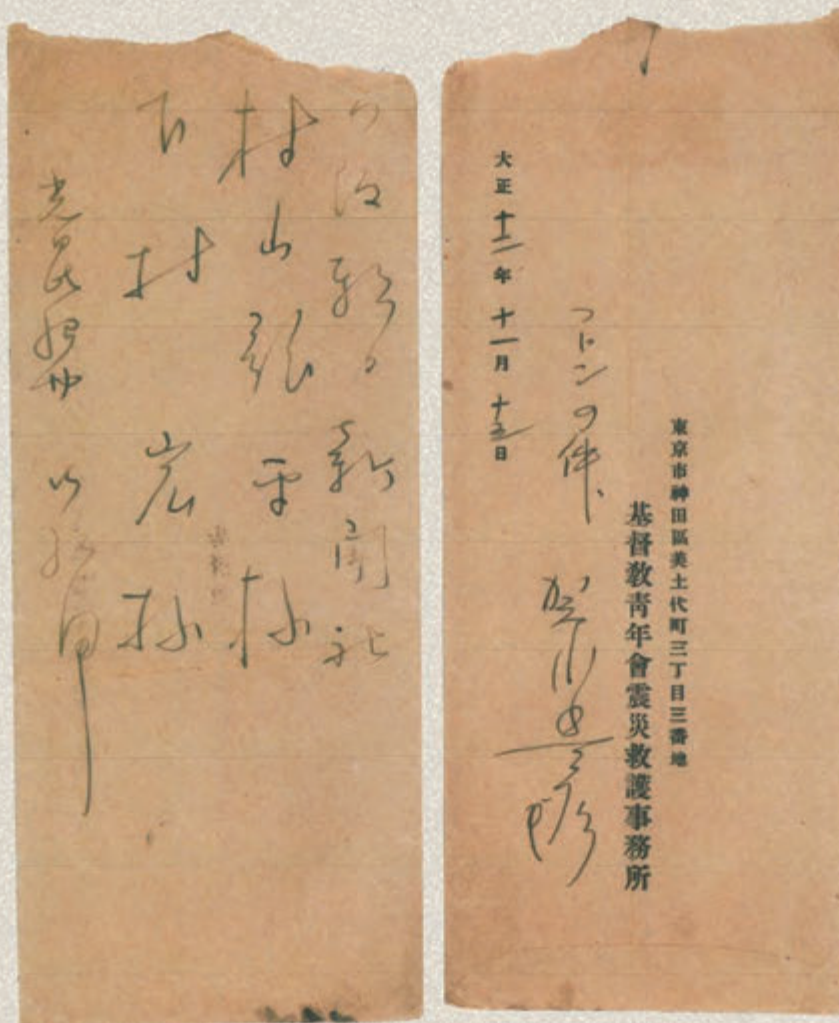 東京市神田區美土代町三丁目三番地
基督敎靑年會震災救護事務所
フトンの件、賀川豊彦
大正十二年十一月十五日
大阪朝日新聞社
村山龍平様
下村宏様